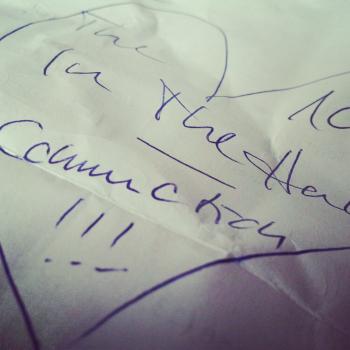 The
In The Ha
10
Connection
!!!